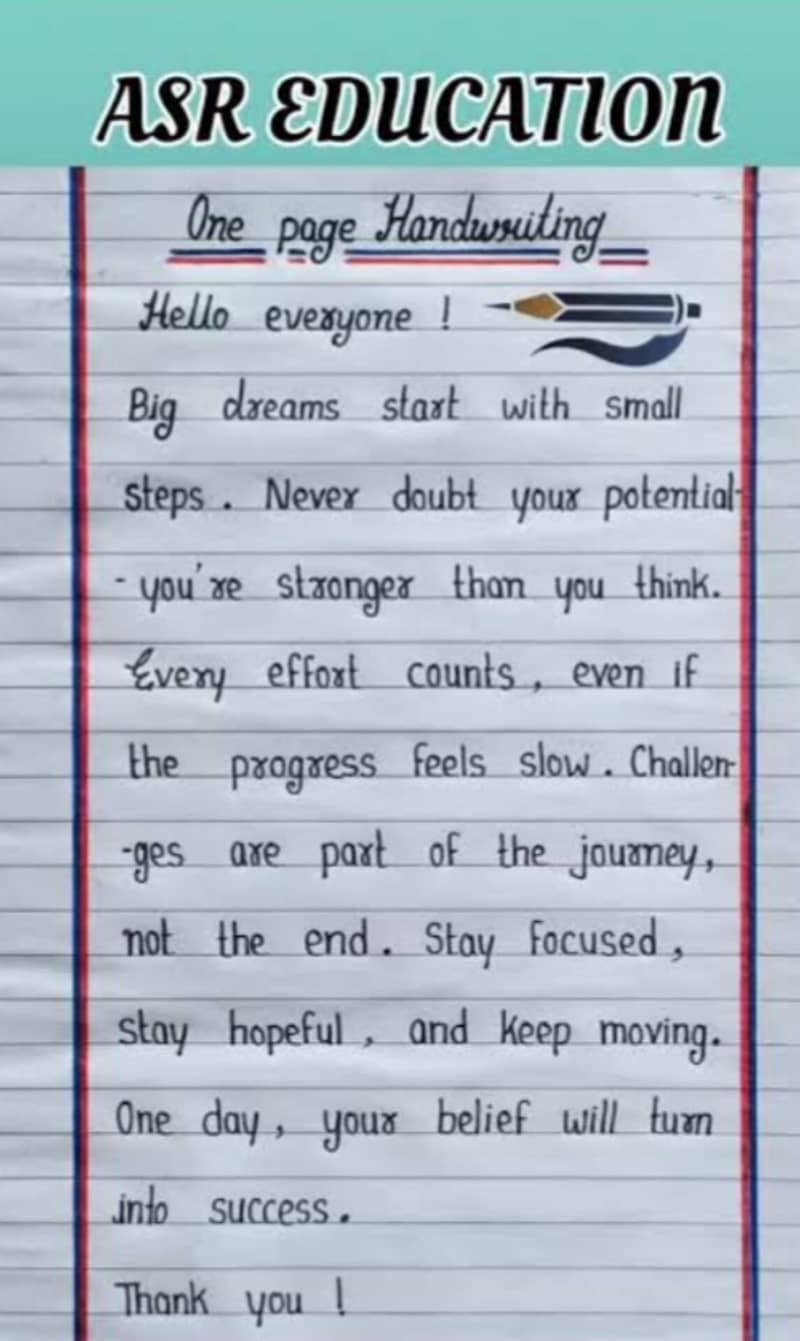 ASR EDUCATION
One page Handwriting
Hello everyone !
Big dreams start with small
steps . Never doubt your potential-
- you're stronger than you think.
Every effort counts , even if
the progress feels slow . Challen-
-ges are part of the journey,
not the end . Stay focused ,
stay hopeful , and keep moving.
One day , your belief will turn
into success .
Thank you !